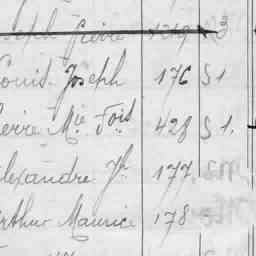 Joseph Pierre 1219
Louis Joseph 176 S1
Pierre Mie Fois 428 S1.
Alexandre Jh 177
Arthur Maurice 178